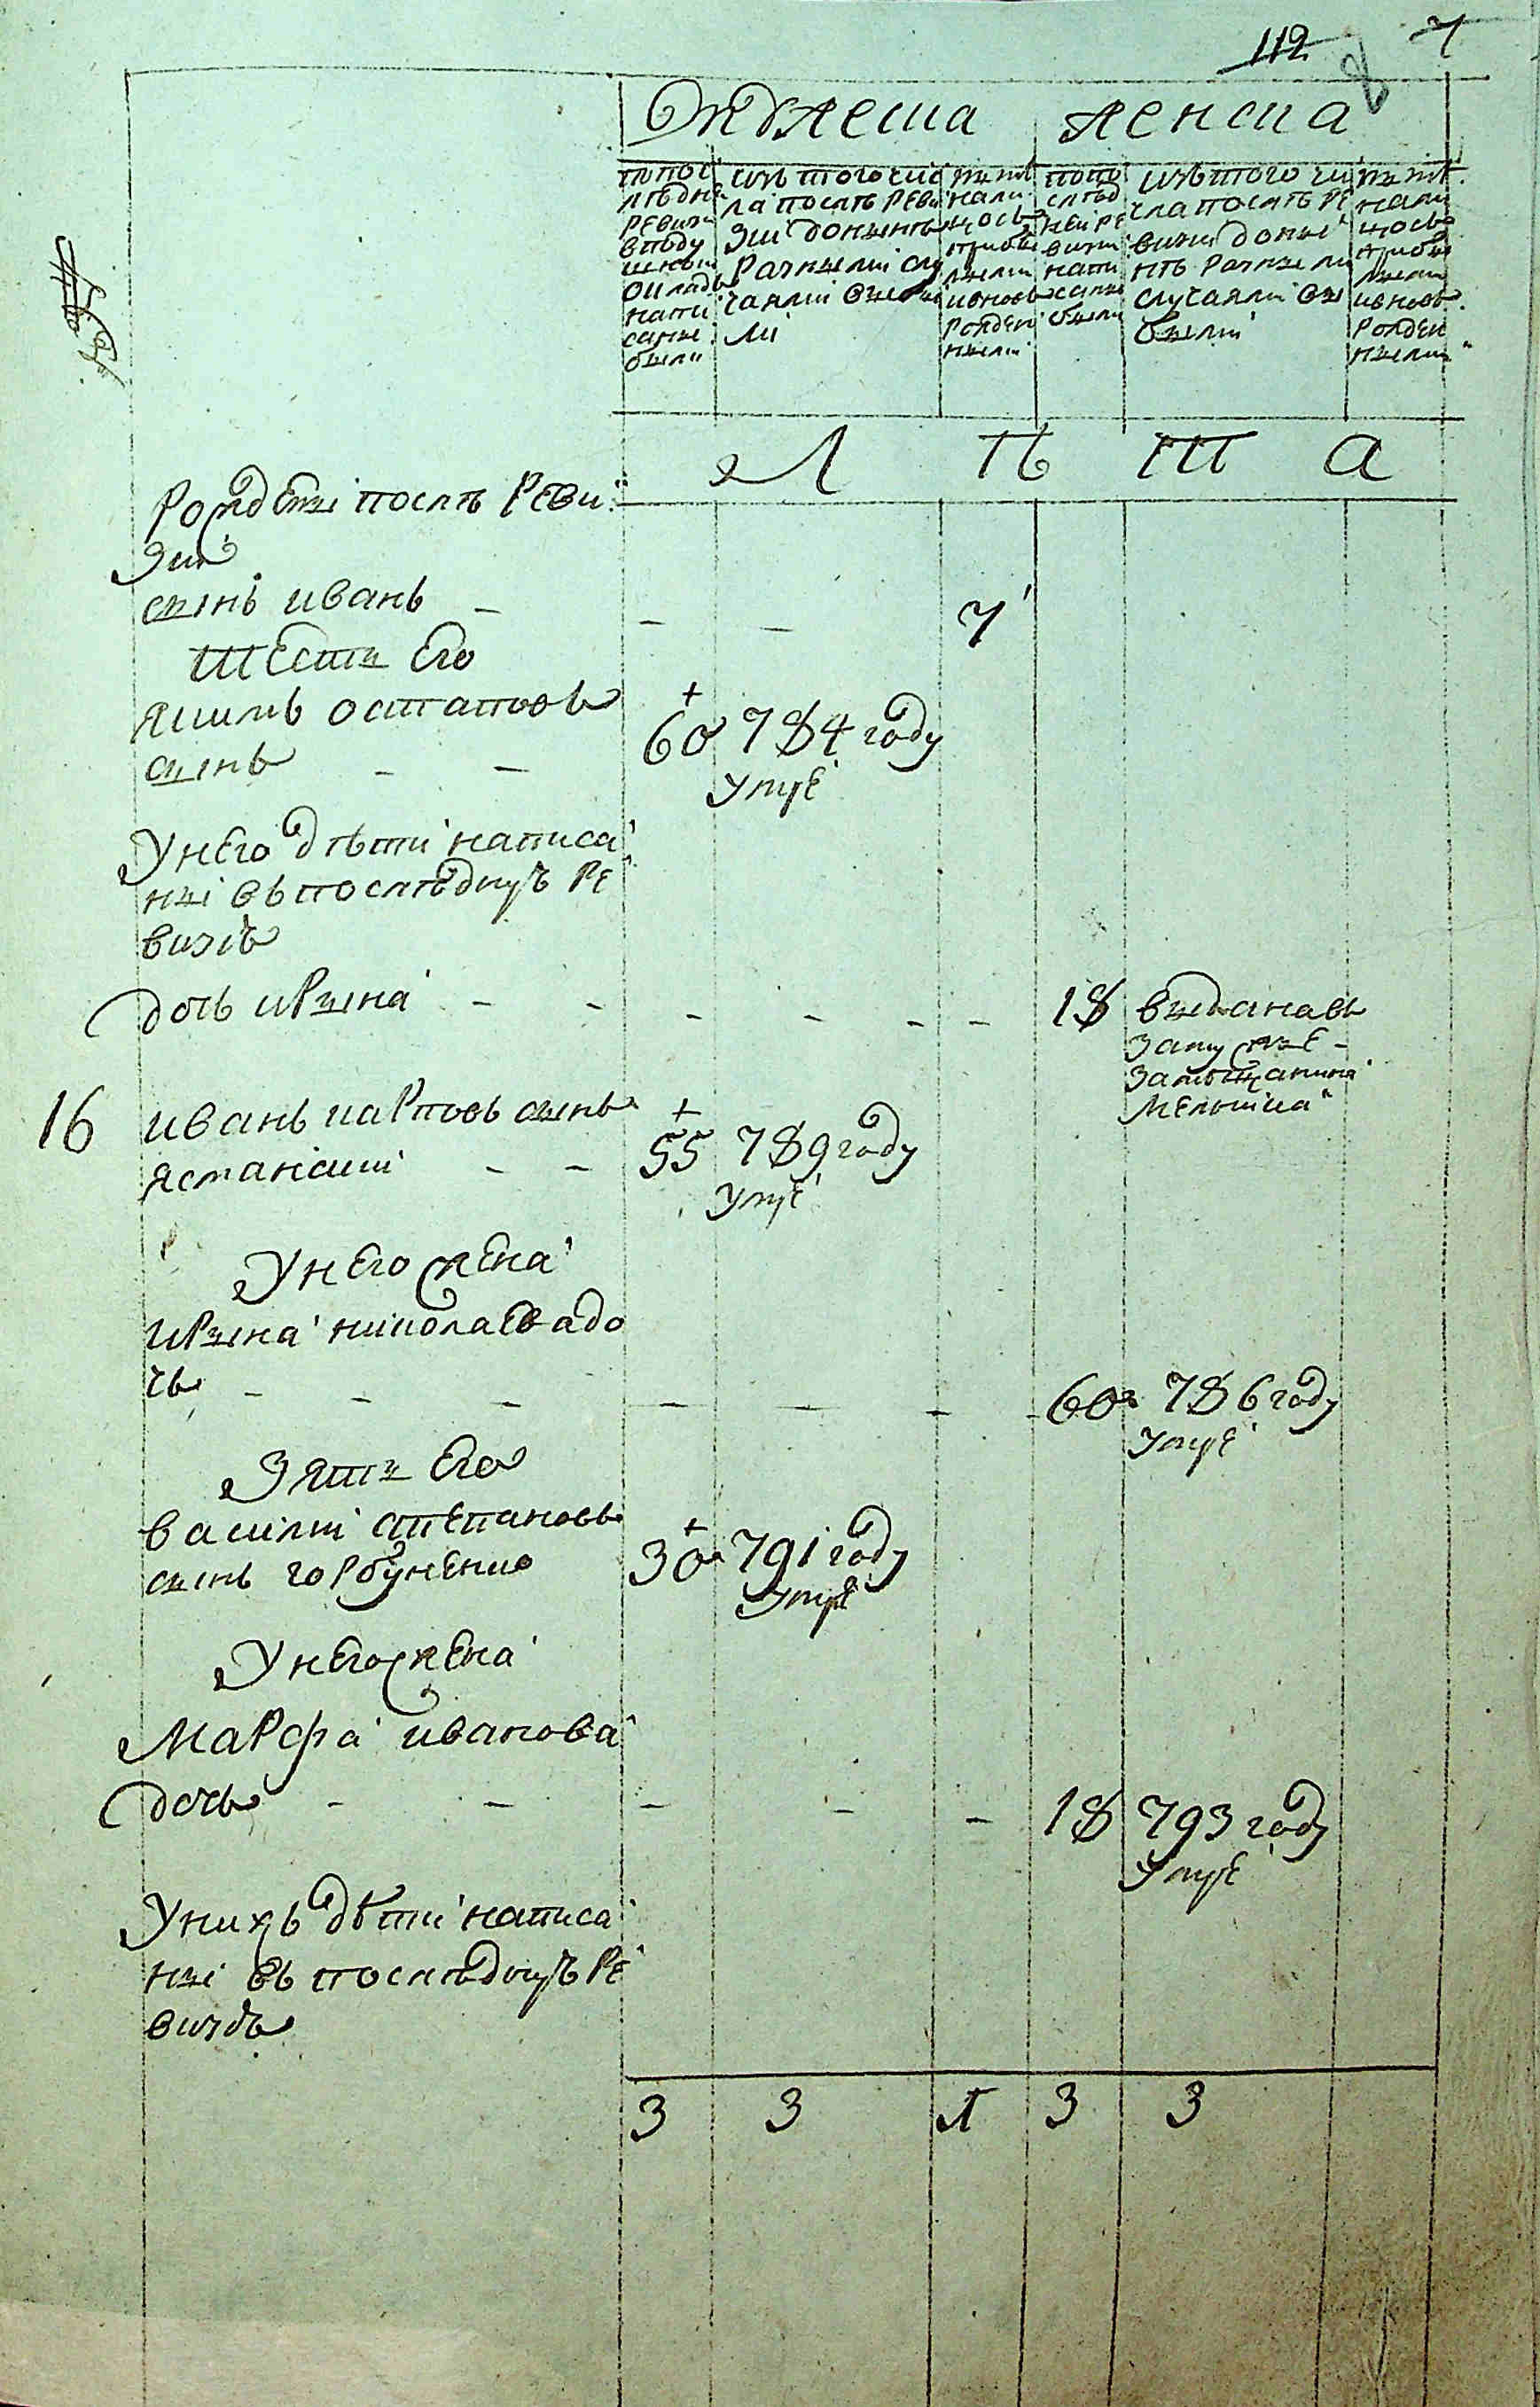 112 7
Мужеска женска
по пос лѣдне ревизи в поду шном окладѣ напи саны были
изъ того чис ла послѣ реви зии до нынѣ разными слу чаями выбы ли
ны нѣ на ли цо съ прибы лыми и вновь рожден ными
по по слѣд ней ре визи напи саны были
изъ того чи сла послѣ ре визи до ны нѣ разными случаями вы были
ны нѣ на ли цо съ прибы лыми и вновь рожден ными
Л ѣ т а
Рождены послѣ реви
зии
сынъ иванъ
7
тесть его
якимъ остаповъ
сынъ
60 784 году
умре
у него дѣти написа
ны въ последнуѣ ре
визiѣ
дочь ирына
18 выдана въ
замужже
за мѣщанина
16 иванъ карповъ сынъ
55 789 году
умре
у него жена
ирына николаева до
чь
60 786 году
умре
зять его
василий степановъ
сынъ горбуненко
30 791 году
умре
у него жена
марфа иванова
дочь
18 793 году
умре
у нихъ дѣти написа
ны въ последнуѣ ре
визѣ
3 3 1 3 3